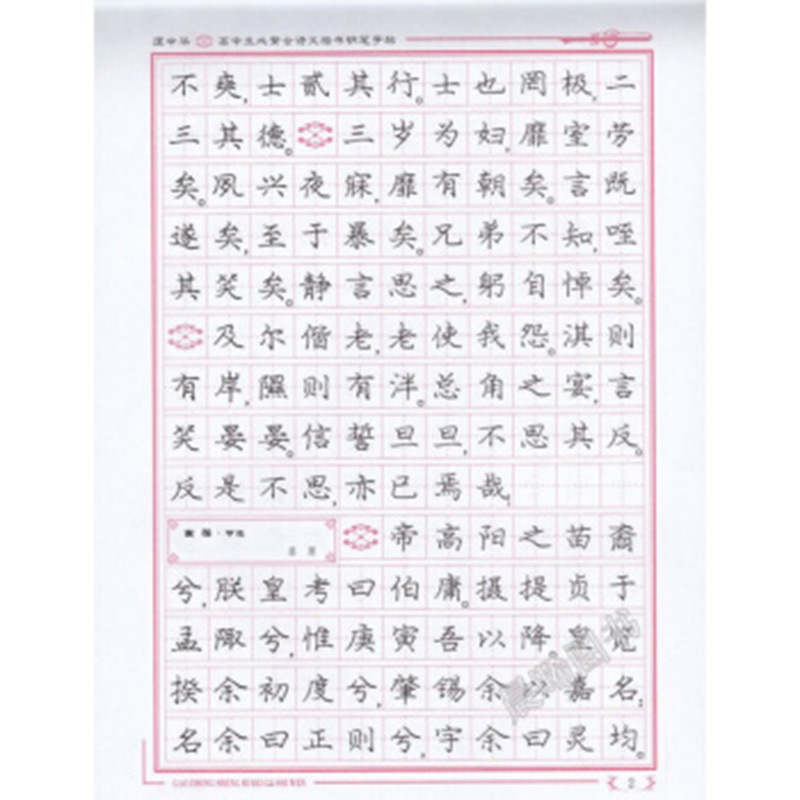 庞中华 高中生必背古诗文楷书钢笔字帖
不爽,士贰其行。士也罔极,二
三其德。三岁为妇,靡室劳
矣。夙兴夜寐,靡有朝矣。言既
遂矣,至于暴矣。兄弟不知,咥
其笑矣。静言思之,躬自悼矣。
及尔偕老,老使我怨。淇则
有岸,隰则有泮。总角之宴,言
笑晏晏。信誓旦旦,不思其反。
反是不思,亦已焉哉!
离骚·节选
帝高阳之苗裔
兮,朕皇考曰伯庸。摄提贞于
孟陬兮,惟庚寅吾以降。皇览
揆余初度兮,肇锡余以嘉名:
名余曰正则兮,字余曰灵均。
2